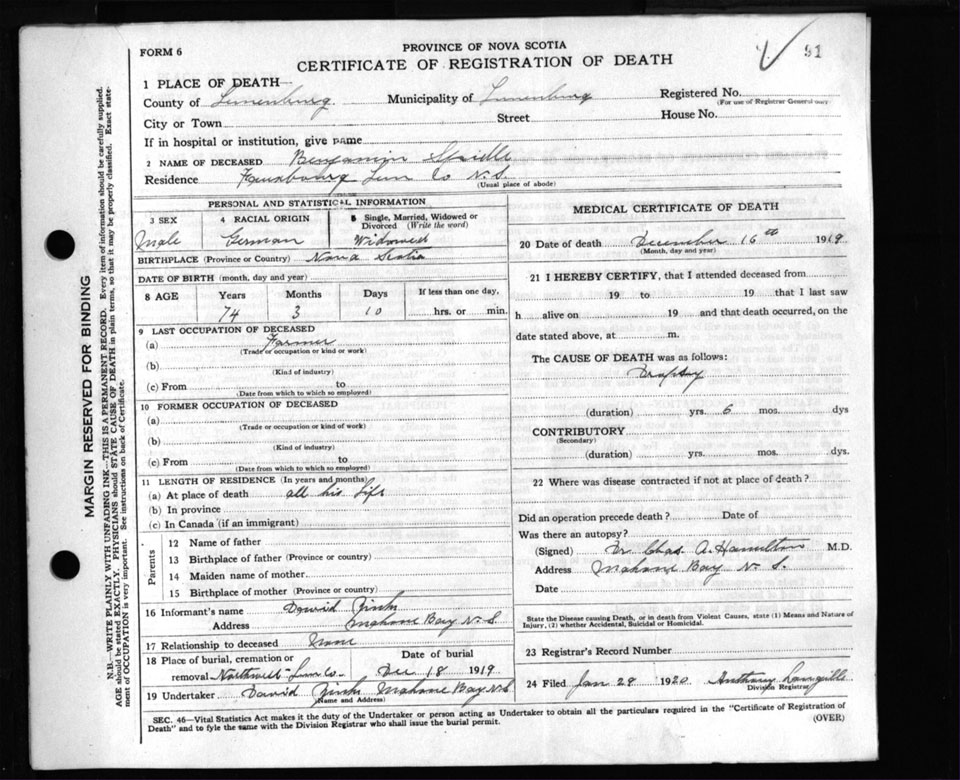 FORM 6
PROVINCE OF NOVA SCOTIA
CERTIFICATE OF REGISTRATION OF DEATH
31
1 PLACE OF DEATH
County of Lunenburg Municipality of Lunenburg Registered No.
(For use of Registrar General only)
City or Town Street House No.
If in hospital or institution, give name
2 NAME OF DECEASED Benjamin Spidle
Residence Fauxbourg Lun Co N.S.
(Usual place of abode)
PERSONAL AND STATISTICAL INFORMATION
3 SEX 4 RACIAL ORIGIN 5 Single, Married, Widowed or Divorced (Write the word)
Male German Widowed
BIRTHPLACE (Province or Country) Nova Scotia
DATE OF BIRTH (month, day and year)
8 AGE Years Months Days If less than one day,
74 3 10 hrs. or min.
9 LAST OCCUPATION OF DECEASED
(a) Farmer
(Trade or occupation or kind or work)
(b)
(Kind of industry)
(c) From to
(Date from which to which so employed)
10 FORMER OCCUPATION OF DECEASED
(a)
(Trade or occupation or kind of work)
(b)
(Kind of industry)
(c) From to
(Date from which to which so employed)
11 LENGTH OF RESIDENCE (In years and months)
(a) At place of death all his life
(b) In province
(c) In Canada (if an immigrant)
Parents
12 Name of father
13 Birthplace of father (Province or country)
14 Maiden name of mother
15 Birthplace of mother (Province or country)
16 Informant's name David Zinck
Address Mahone Bay N.S.
17 Relationship to deceased None
18 Place of burial, cremation or Date of burial
removal Northwest Lun Co Dec 18 1919
19 Undertaker David Zinck Mahone Bay N.S
(Name and Address)
MEDICAL CERTIFICATE OF DEATH
20 Date of death December 16th 1919
(Month, day and year)
21 I HEREBY CERTIFY, that I attended deceased from
19 to 19 that I last saw
h alive on 19 and that death occurred, on the
date stated above, at m.
The CAUSE OF DEATH was as follows:
Dropsy
(duration) yrs. 6 mos. dys
CONTRIBUTORY
(Secondary)
(duration) yrs. mos. dys.
22 Where was disease contracted if not at place of death?
Did an operation precede death? Date of
Was there an autopsy?
(Signed) Dr Chas. A. Hamilton M.D.
Address Mahone Bay N. S.
Date
State the Disease causing Death, or in death from Violent Causes, state (1) Means and Nature of
Injury, (2) whether Accidental, Suicidal or Homicidal.
23 Registrar's Record Number
24 Filed Jan 28 1920 Anthony Langille
Division Registrar
SEC. 46—Vital Statistics Act makes it the duty of the Undertaker or person acting as Undertaker to obtain all the particulars required in the "Certificate of Registration of
Death" and to fyle the same with the Division Registrar who shall issue the burial permit.
(OVER)
MARGIN RESERVED FOR BINDING
N.B.—WRITE PLAINLY WITH UNFADING INK—THIS IS A PERMANENT RECORD. Every item of information should be carefully supplied.
AGE should be stated EXACTLY. PHYSICIANS should STATE CAUSE OF DEATH in plain terms, so that it may be properly classified. Exact state-
ment of OCCUPATION is very important. See instructions on back of Certificate.